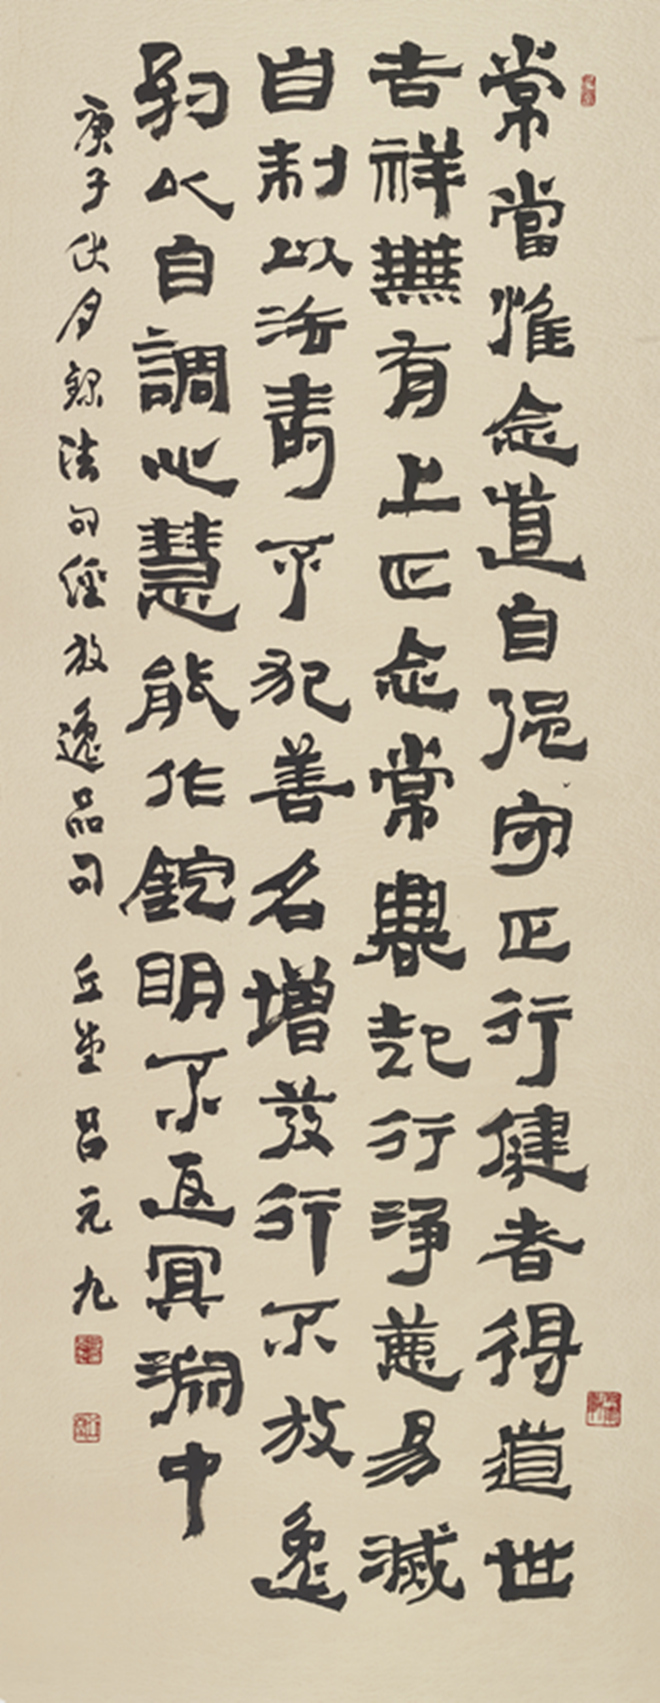 常當惟念道自强守正行健者得道世
吉祥無有上正念常興起行淨惡易滅
自制以法壽不犯善名增發行不放逸
約以自調心慧能作錠明不返冥淵中
庚子伏月錄法句經放逸品句 丘堂 呂元九